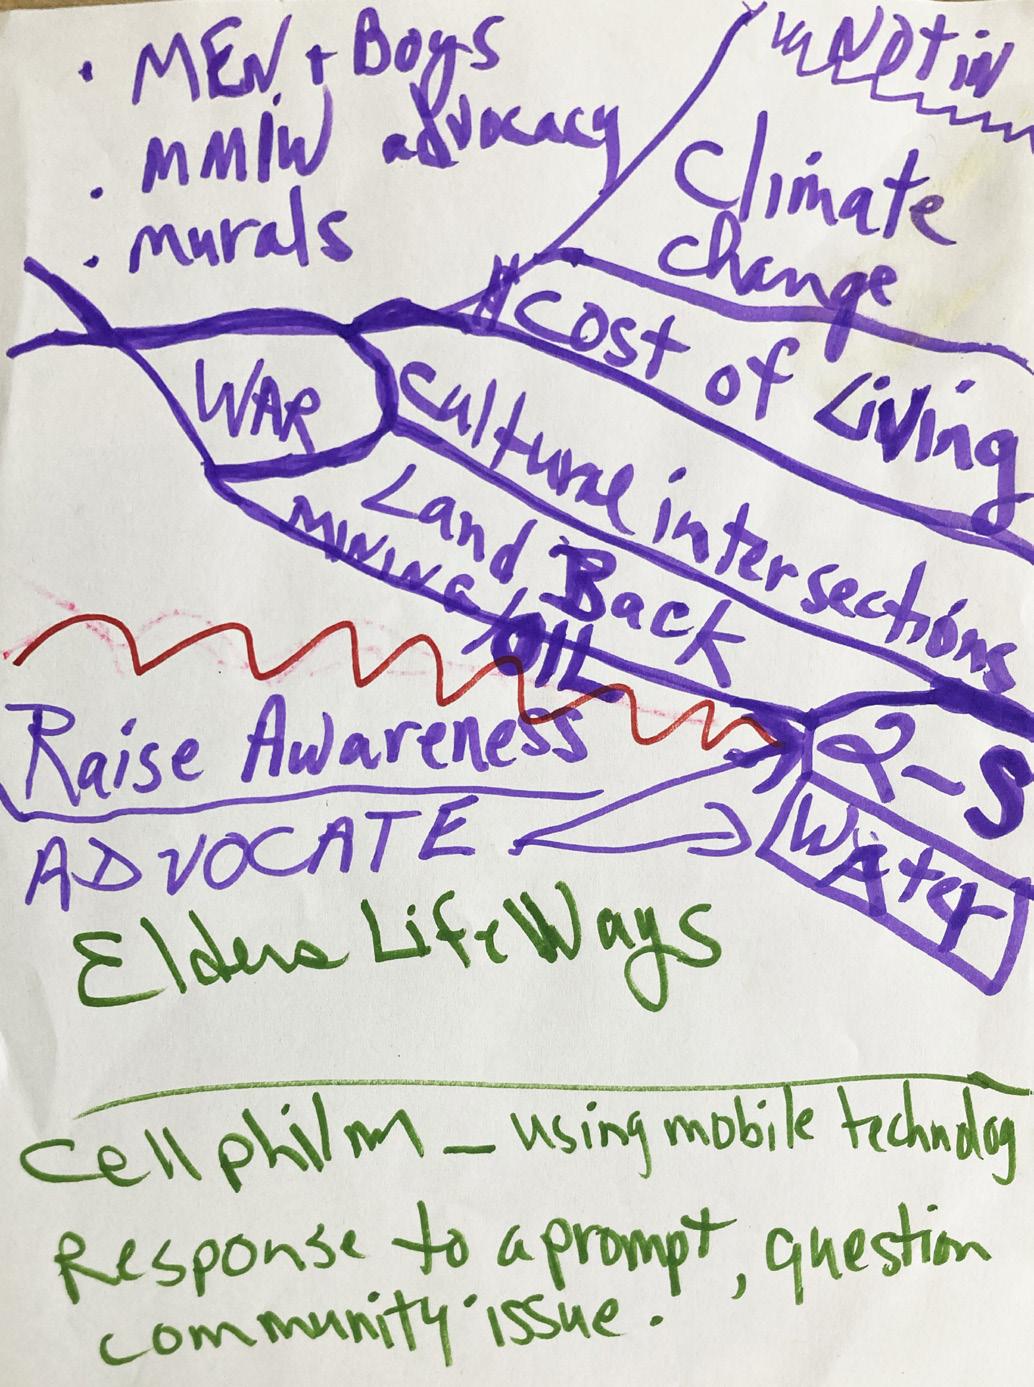 • MEN + Boys
• MMIW advocacy
• murals
NOT in
Climate
change
Cost of Living
WAR
Cultural intersections
Land Back
MINING/OIL
2-S
Water
Raise Awareness
ADVOCATE
Elders LifeWays
Cellphilm – using mobile technolog
Response to a prompt, question
community issue.